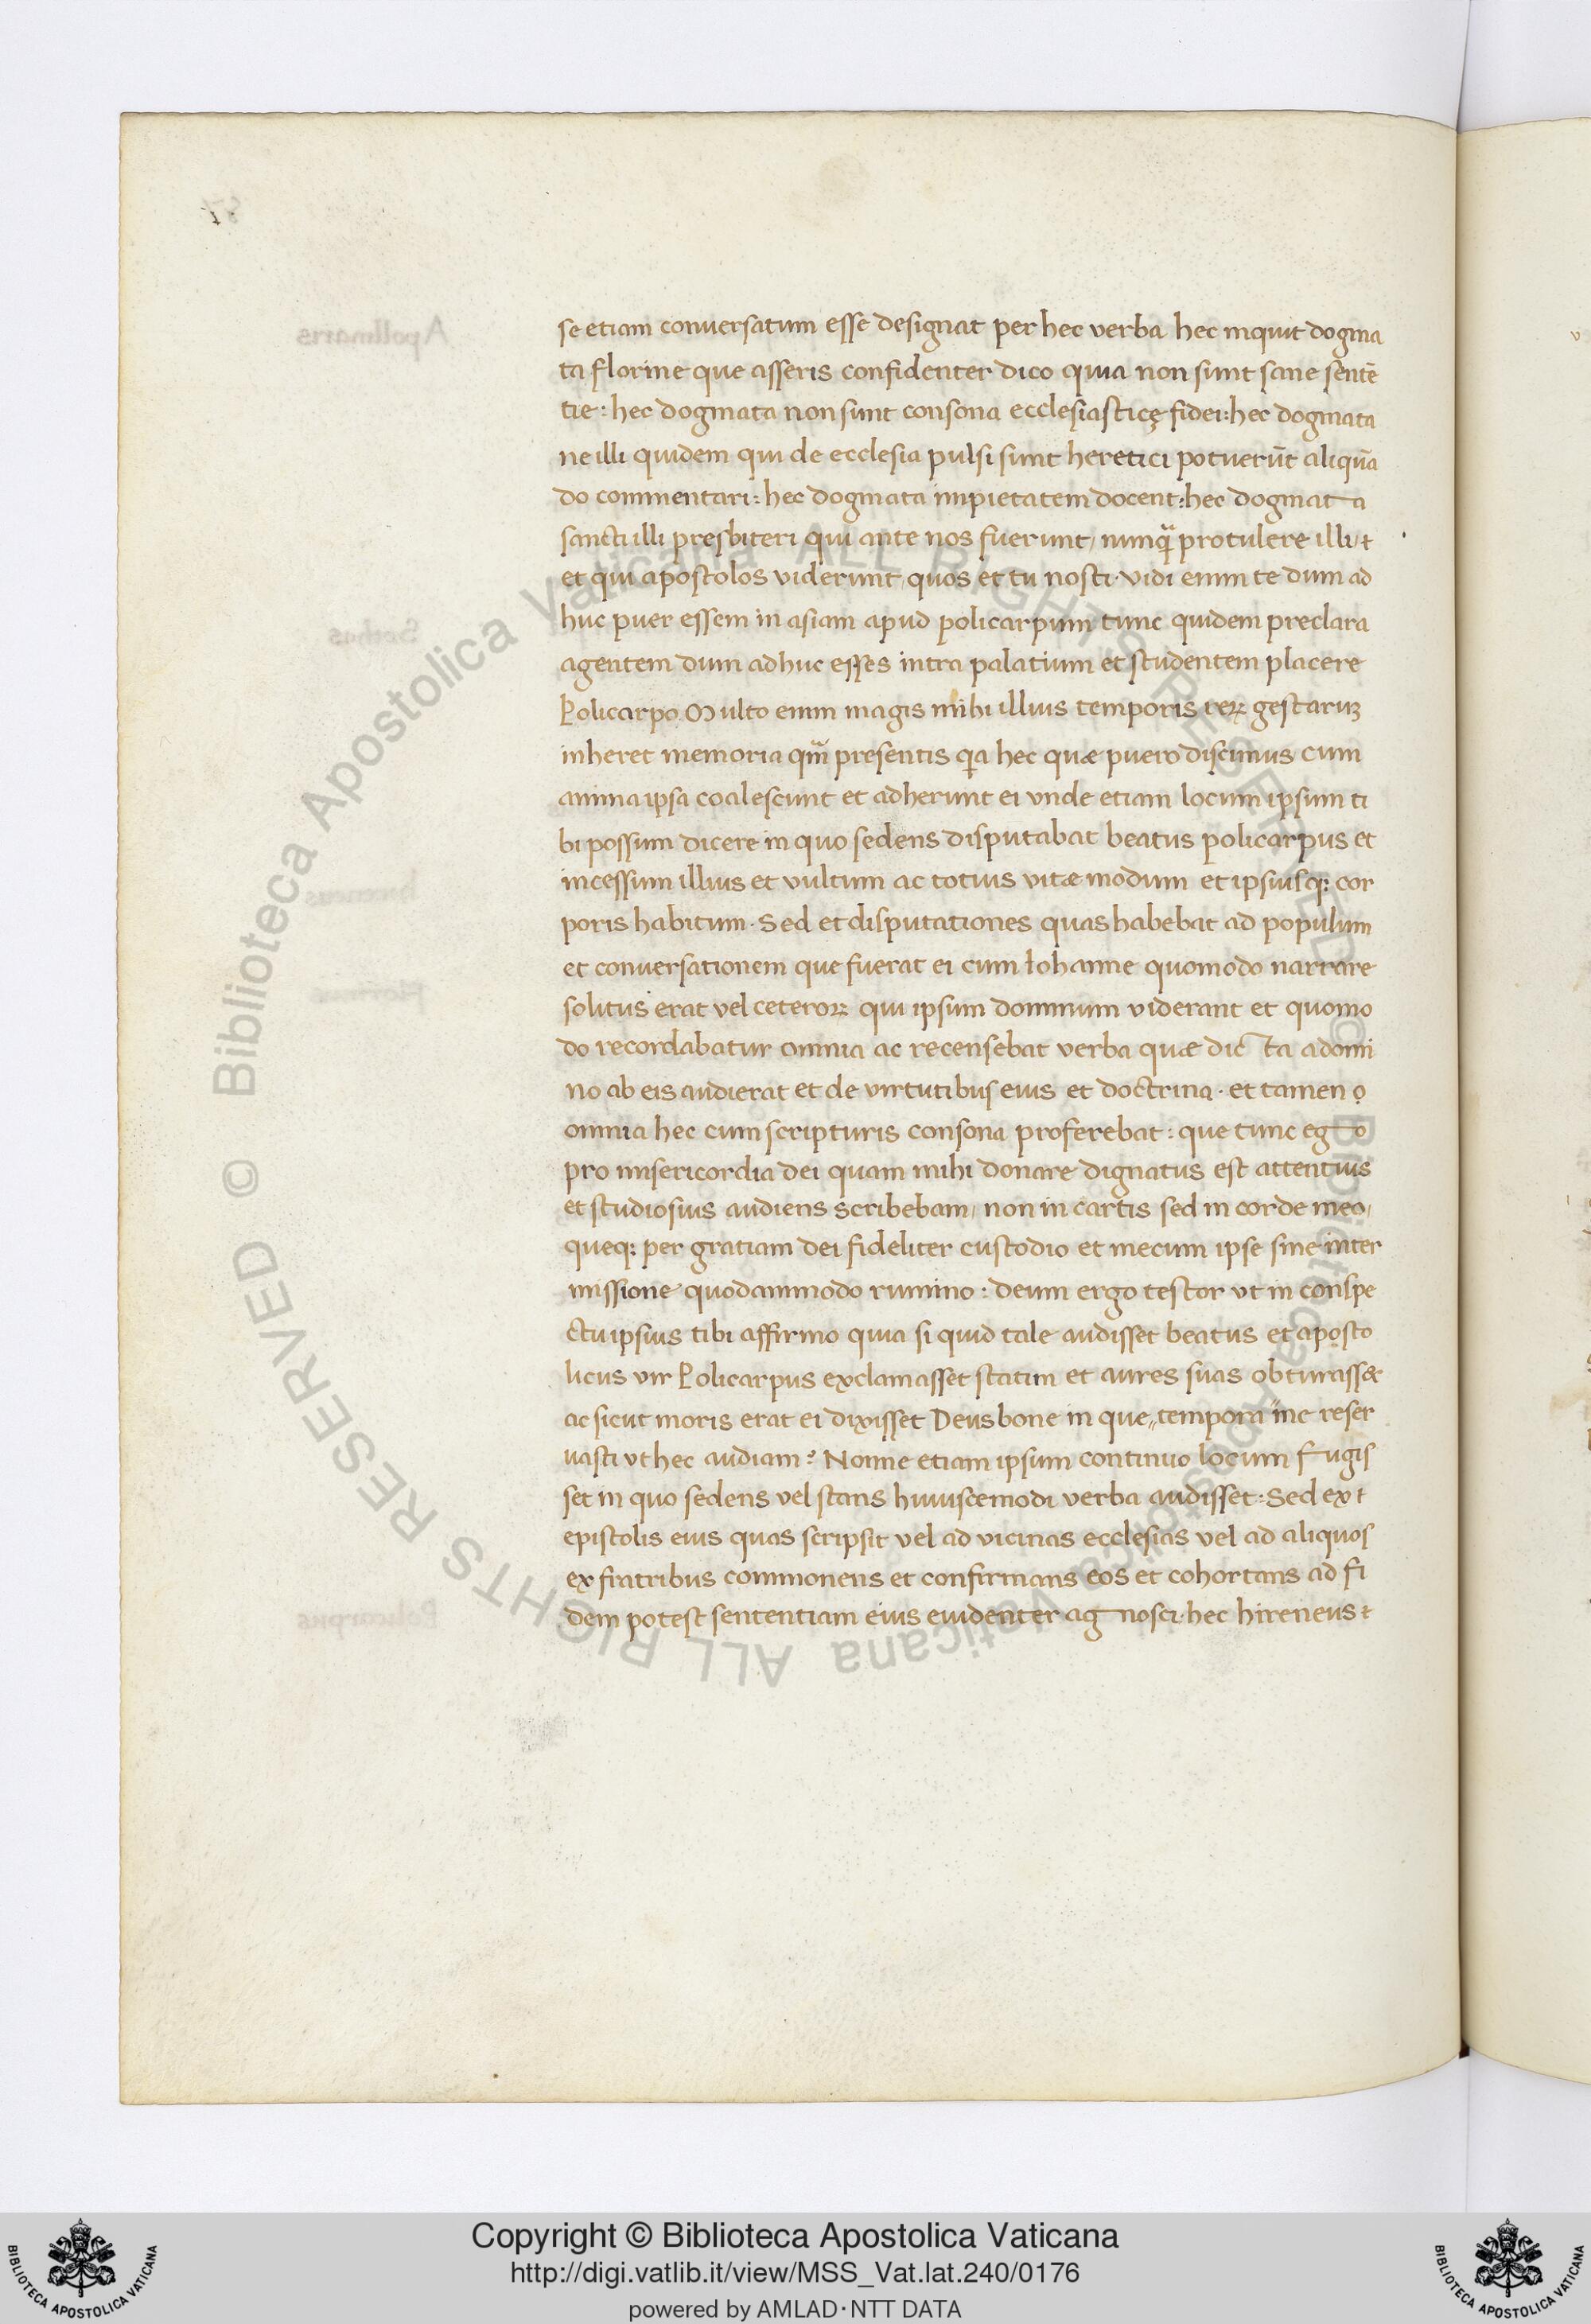 se etiam conuersatum esse designat per hec verba hec inquit dogma
ta florine que asseris confidenter dico quia non sunt sane sentē
tie: hec dogmata non sunt consona ecclesiasticę fidei: hec dogmata
ne illi quidem qui de ecclesia pulsi sunt heretici potuerūt aliquā
do commentari: hec dogmata impietatem docent: hec dogmata
sancti illi presbiteri qui ante nos fuerunt/ nunq̄ protulere illi
et qui apostolos viderunt quos et tu nosti. vidi enim te dum ad
huc puer essem in asiam apud policarpum tunc quidem preclara
agentem dum adhuc esses intra palatium et studentem placere
Policarpo Multo enim magis mihi illius temporis reꝝ gestaruꝫ
inheret memoria qm̄ presentis qa hec quæ puero discimus cum
anima ipsa coalescunt et adherunt ei vnde etiam locum ipsum ti
bi possum dicere in quo sedens disputabat beatus policarpus et
incessum illius et vultum ac totius vitæ modum et ipsiusqꝫ cor
poris habitum. Sed et disputationes quas habebat ad populum
et conuersationem que fuerat ei cum Iohanne quomodo narrare
solitus erat vel ceteroꝝ qui ipsum dominum viderant et quomo
do recordabatur omnia ac recensebat verba quæ dic ta a domi
no ab eis audierat et de virtutibus eius et doctrina. et tamen o
omnia hec cum scripturis consona proferebat: que tunc ego
pro misericordia dei quam mihi donare dignatus est attentius
et studiosius audiens scribebam/ non in cartis sed in corde meo/
queqꝫ per gratiam dei fideliter custodio et mecum ipse sine inter
missione quodammodo rumino: deum ergo testor vt in conspe
ctu ipsius tibi affirmo quia si quid tale audisset beatus et aposto
licus vir Policarpus exclamasset statim et aures suas obturasset
ac sicut moris erat ei dixisset Deus bone in que tempora me reser
uasti vt hec audiam? Nonne etiam ipsum continuo locum fugis
set in quo sedens vel stans huiuscemodi verba audisset: Sed ex
epistolis eius quas scripsit vel ad vicinas ecclesias vel ad aliquos
ex fratribus commonens et confirmans eos et cohortans ad fi
dem potest sententiam eius euidenter agnosci. hec hireneus
© Biblioteca Apostolica Vaticana ALL RIGHTS RESERVED © Biblioteca Apostolica Vaticana ALL RIGHTS RESERVED
Copyright © Biblioteca Apostolica Vaticana
http://digi.vatlib.it/view/MSS_Vat.lat.240/0176
powered by AMLAD·NTT DATA
BIBLIOTECA APOSTOLICA VATICANA
BIBLIOTECA APOSTOLICA VATICANA